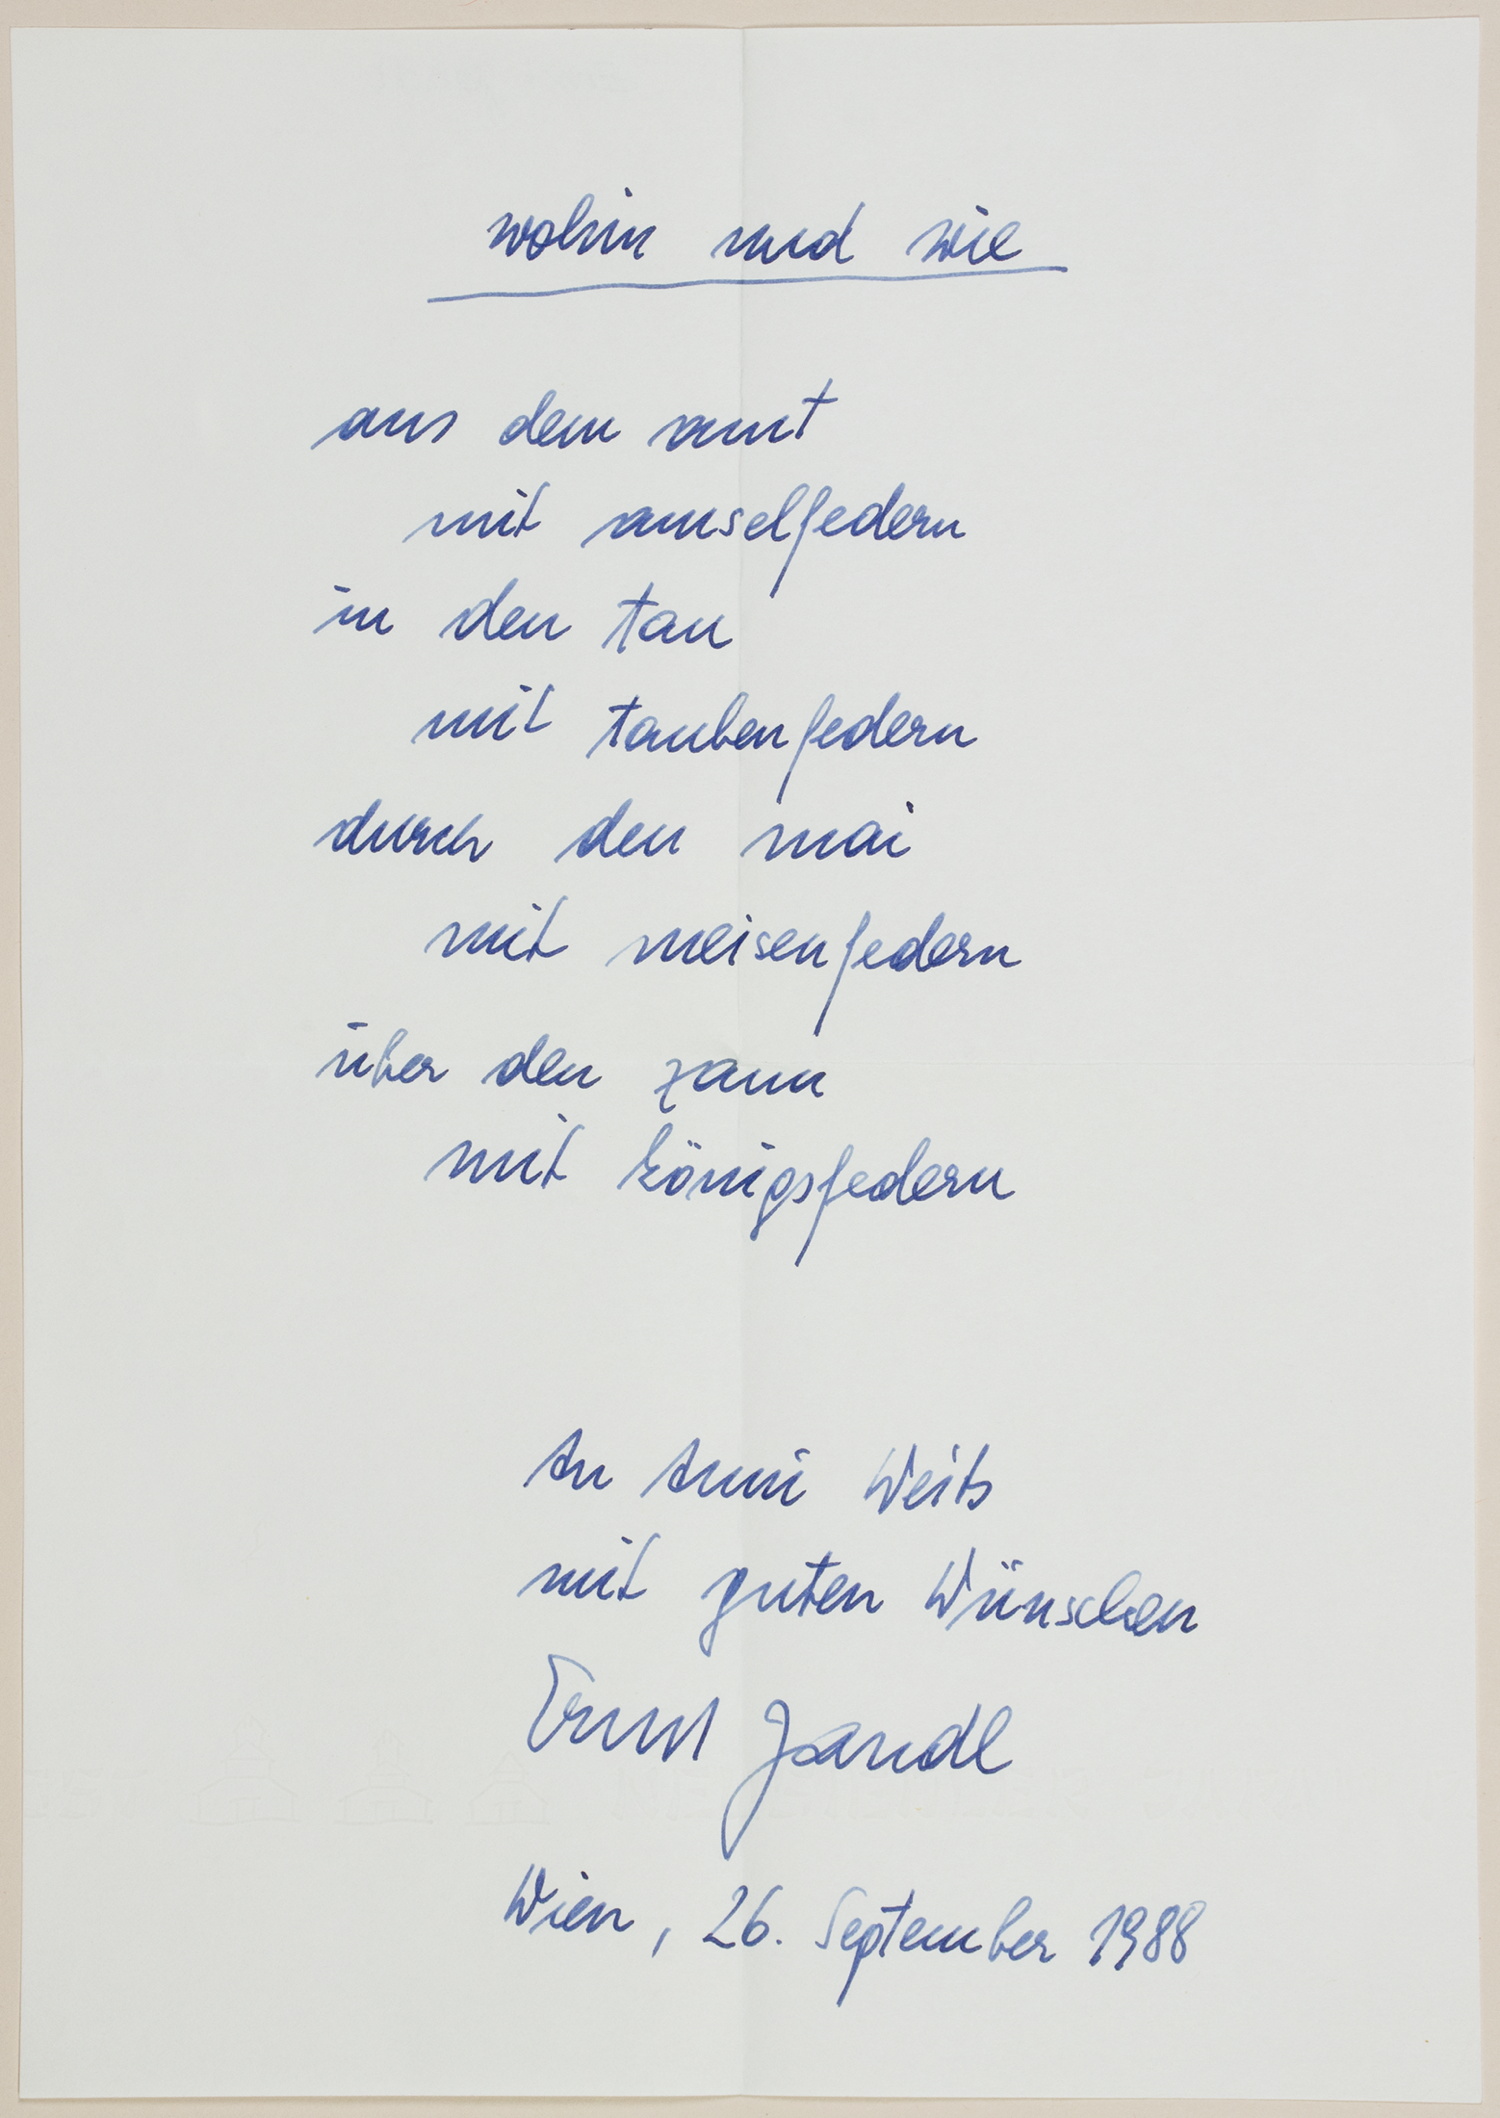 wohin und wie
aus dem amt
mit amselfedern
in den tau
mit taubenfedern
durch den mai
mit meisenfedern
über den zaun
mit königsfedern
An Anni Weits
mit guten Wünschen
Ernst Jandl
Wien, 26. September 1988